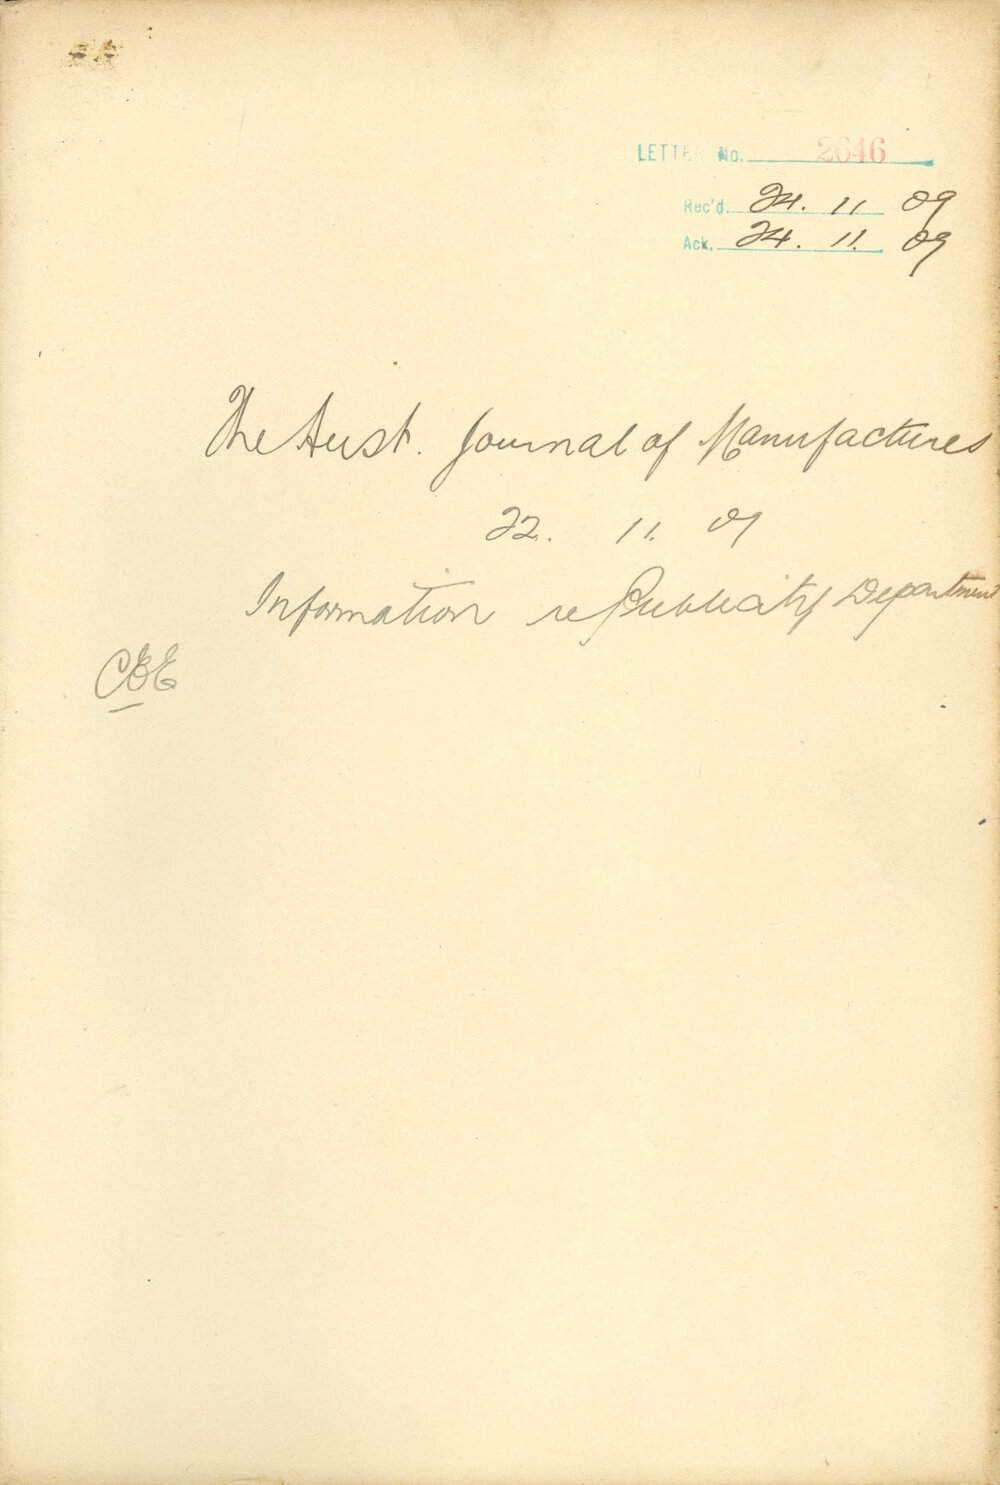 LETTER No. 2646
Rec'd. 24. 11 09
Ack. 24. 11. 09
The Aust. Journal of Manufactures
22. 11. 09
Information re Publicity Department
CBE